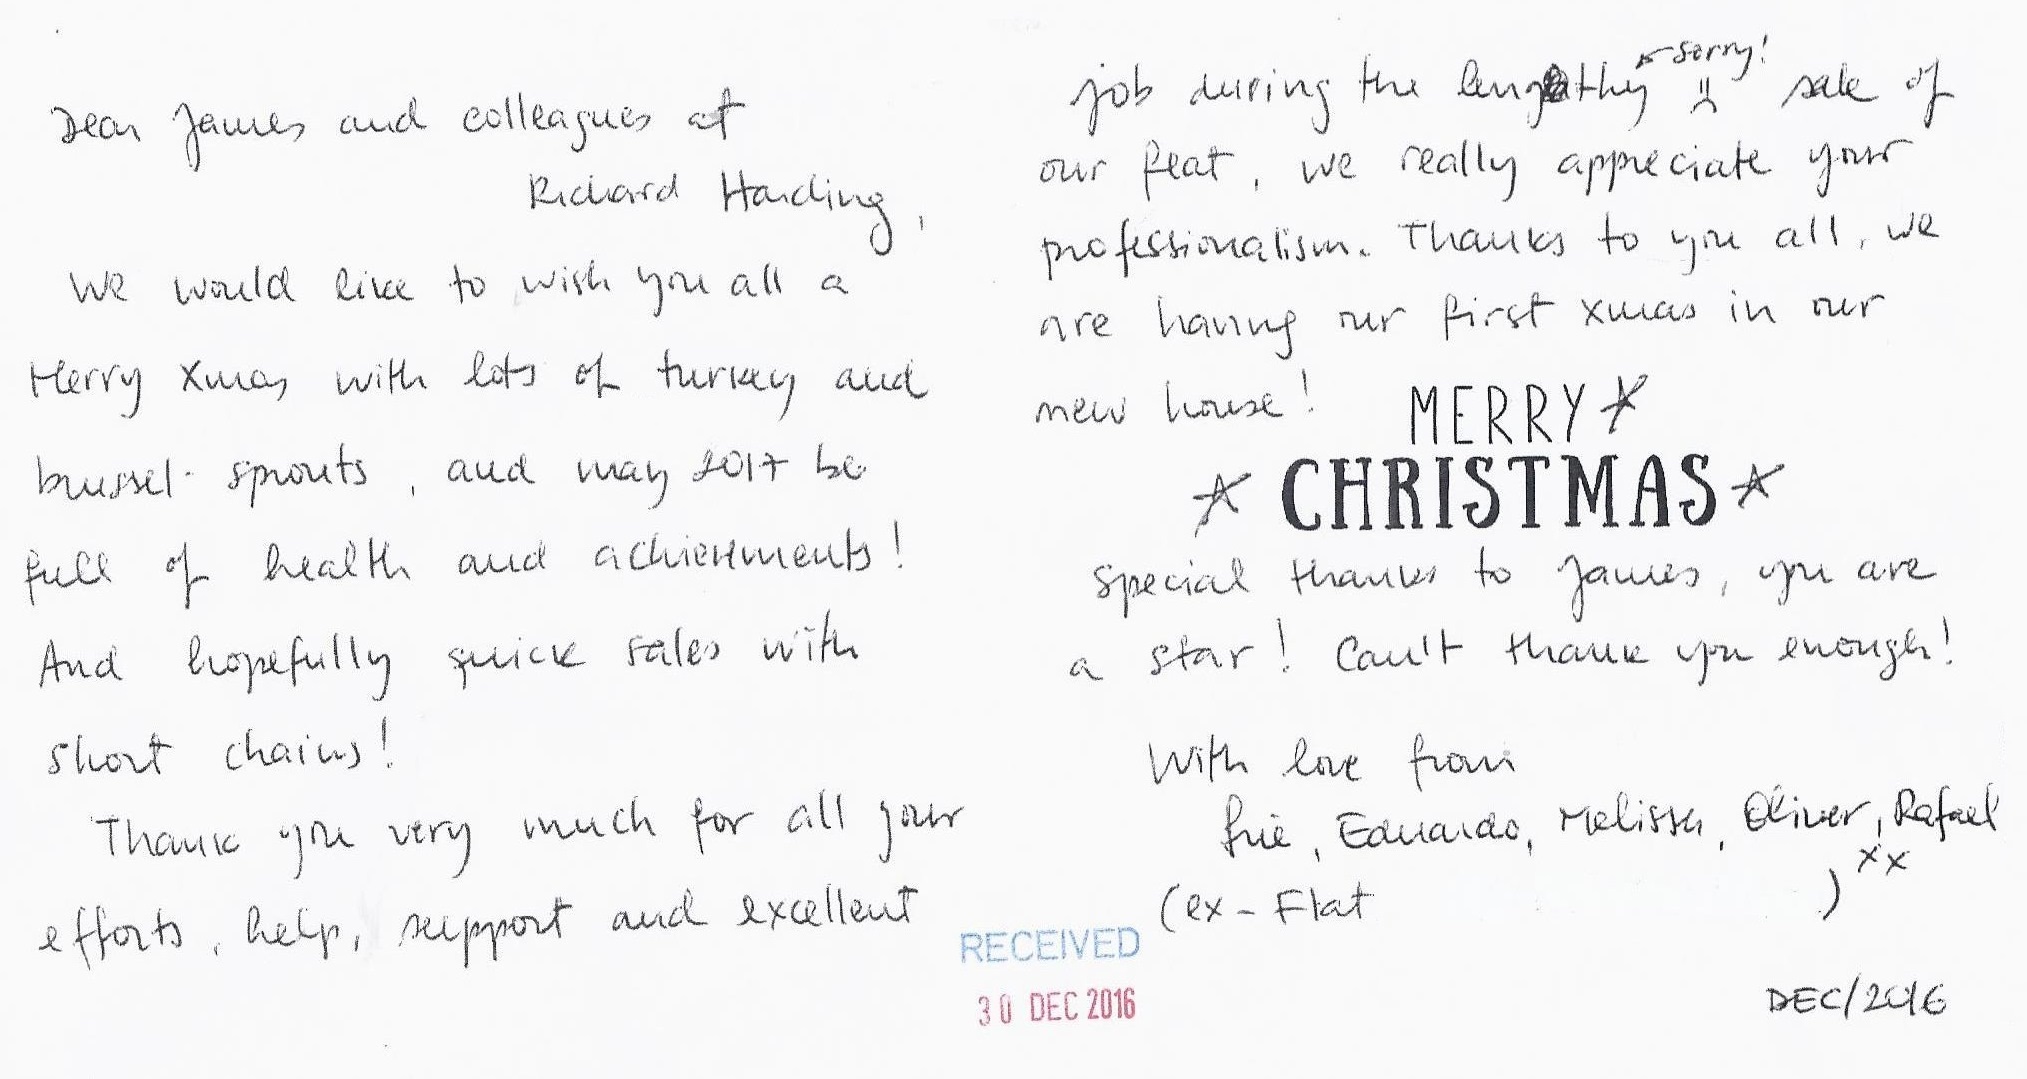 Dear James and colleagues at
Richard Harding,
We would like to wish you all a
Merry Xmas with lots of turkey and
brussel sprouts, and may 2017 be
full of health and achievements!
And hopefully quick sales with
short chains!
Thank you very much for all your
efforts, help, support and excellent
job during the lengthy sorry! sale of
our flat, we really appreciate your
professionalism. Thanks to you all, we
are having our first xmas in our
new house!
MERRY
CHRISTMAS
Special thanks to James, you are
a star! Can't thank you enough!
With love from
Eduardo, Melissa, Oliver, Rafael
xx
(ex-Flat )
RECEIVED
30 DEC 2016
DEC/2016